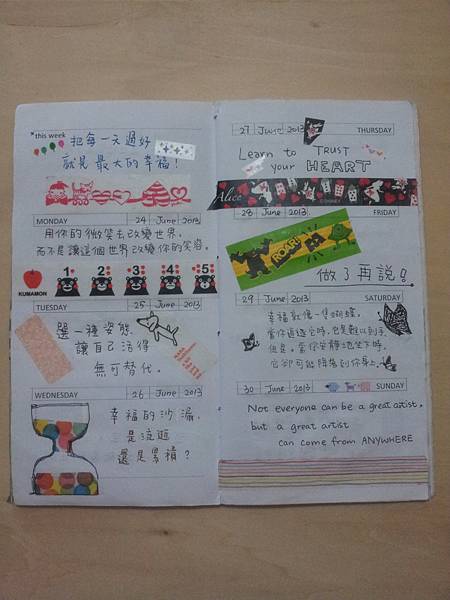 *this week
把每一天過好
就是最大的幸福！
MONDAY 24 June 2013
用你的微笑去改變世界，
而不是讓這個世界改變你的笑容。
KUMAMON
1 2 3 4 5
TUESDAY 25 June 2013
選一種姿態，
讓自己活得
無可替代。
WEDNESDAY 26 June 2013
幸福的沙漏，
是流逝
還是累積？
27 June 2013 THURSDAY
Learn to TRUST
your HEART
Alice
28 June 2013 FRIDAY
ROAR!
做了再說！
29 June 2013 SATURDAY
幸福就像一隻蝴蝶，
當你追逐它時，它是難以到手，
但是，當你安靜地坐下時，
它卻可能降落到你身上。
30 June 2013 SUNDAY
Not everyone can be a great artist,
but a great artist
can come from ANYWHERE